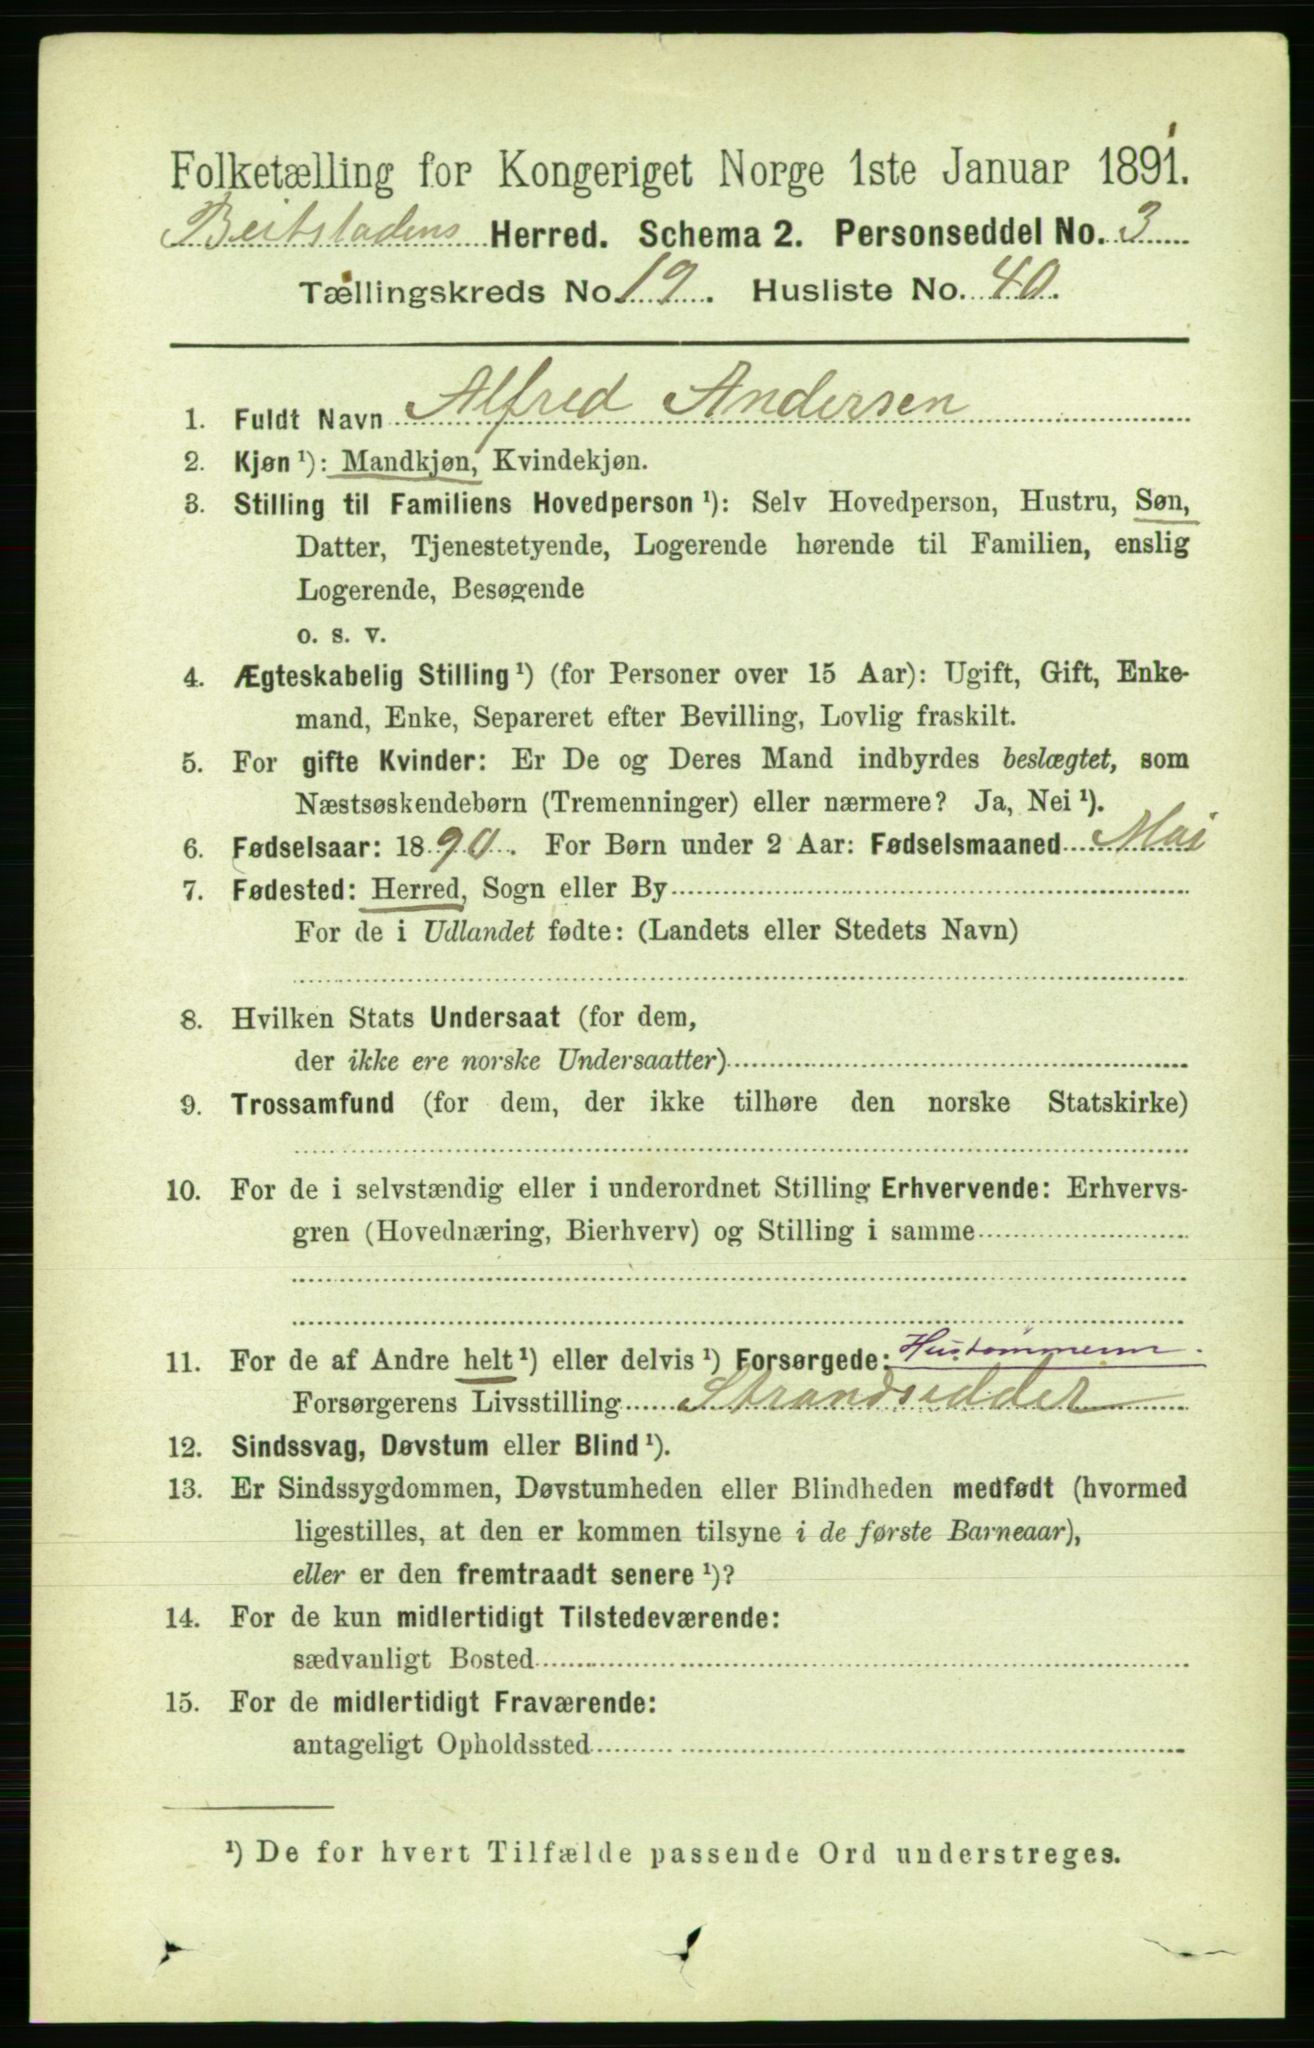 Folketælling for Kongeriget Norge 1ste Januar 1891.
Beitstadens Herred. Schema 2. Personseddel No. 3
Tællingskreds No. 19. Husliste No. 40.
1. Fuldt Navn Alfred Andersen
2. Kjøn ¹): Mandkjøn, Kvindekjøn.
3. Stilling til Familiens Hovedperson ¹): Selv Hovedperson, Hustru, Søn,
Datter, Tjenestetyende, Logerende hørende til Familien, enslig
Logerende, Besøgende
o. s. v.
4. Ægteskabelig Stilling ¹) (for Personer over 15 Aar): Ugift, Gift, Enke-
mand, Enke, Separeret efter Bevilling, Lovlig fraskilt.
5. For gifte Kvinder: Er De og Deres Mand indbyrdes beslægtet, som
Næstsøskendebørn (Tremenninger) eller nærmere? Ja, Nei ¹).
6. Fødselsaar: 1890. For Børn under 2 Aar: Fødselsmaaned Mai
7. Fødested: Herred, Sogn eller By
For de i Udlandet fødte: (Landets eller Stedets Navn)
8. Hvilken Stats Undersaat (for dem,
der ikke ere norske Undersaatter)
9. Trossamfund (for dem, der ikke tilhøre den norske Statskirke)
10. For de i selvstændig eller i underordnet Stilling Erhvervende: Erhvervs-
gren (Hovednæring, Bierhverv) og Stilling i samme
11. For de af Andre helt ¹) eller delvis ¹) Forsørgede:
Forsørgerens Livsstilling Strandsidder
12. Sindssvag, Døvstum eller Blind ¹).
13. Er Sindssygdommen, Døvstumheden eller Blindheden medfødt (hvormed
ligestilles, at den er kommen tilsyne i de første Barneaar),
eller er den fremtraadt senere ¹)?
14. For de kun midlertidigt Tilstedeværende:
sædvanligt Bosted
15. For de midlertidigt Fraværende:
antageligt Opholdssted
¹) De for hvert Tilfælde passende Ord understreges.